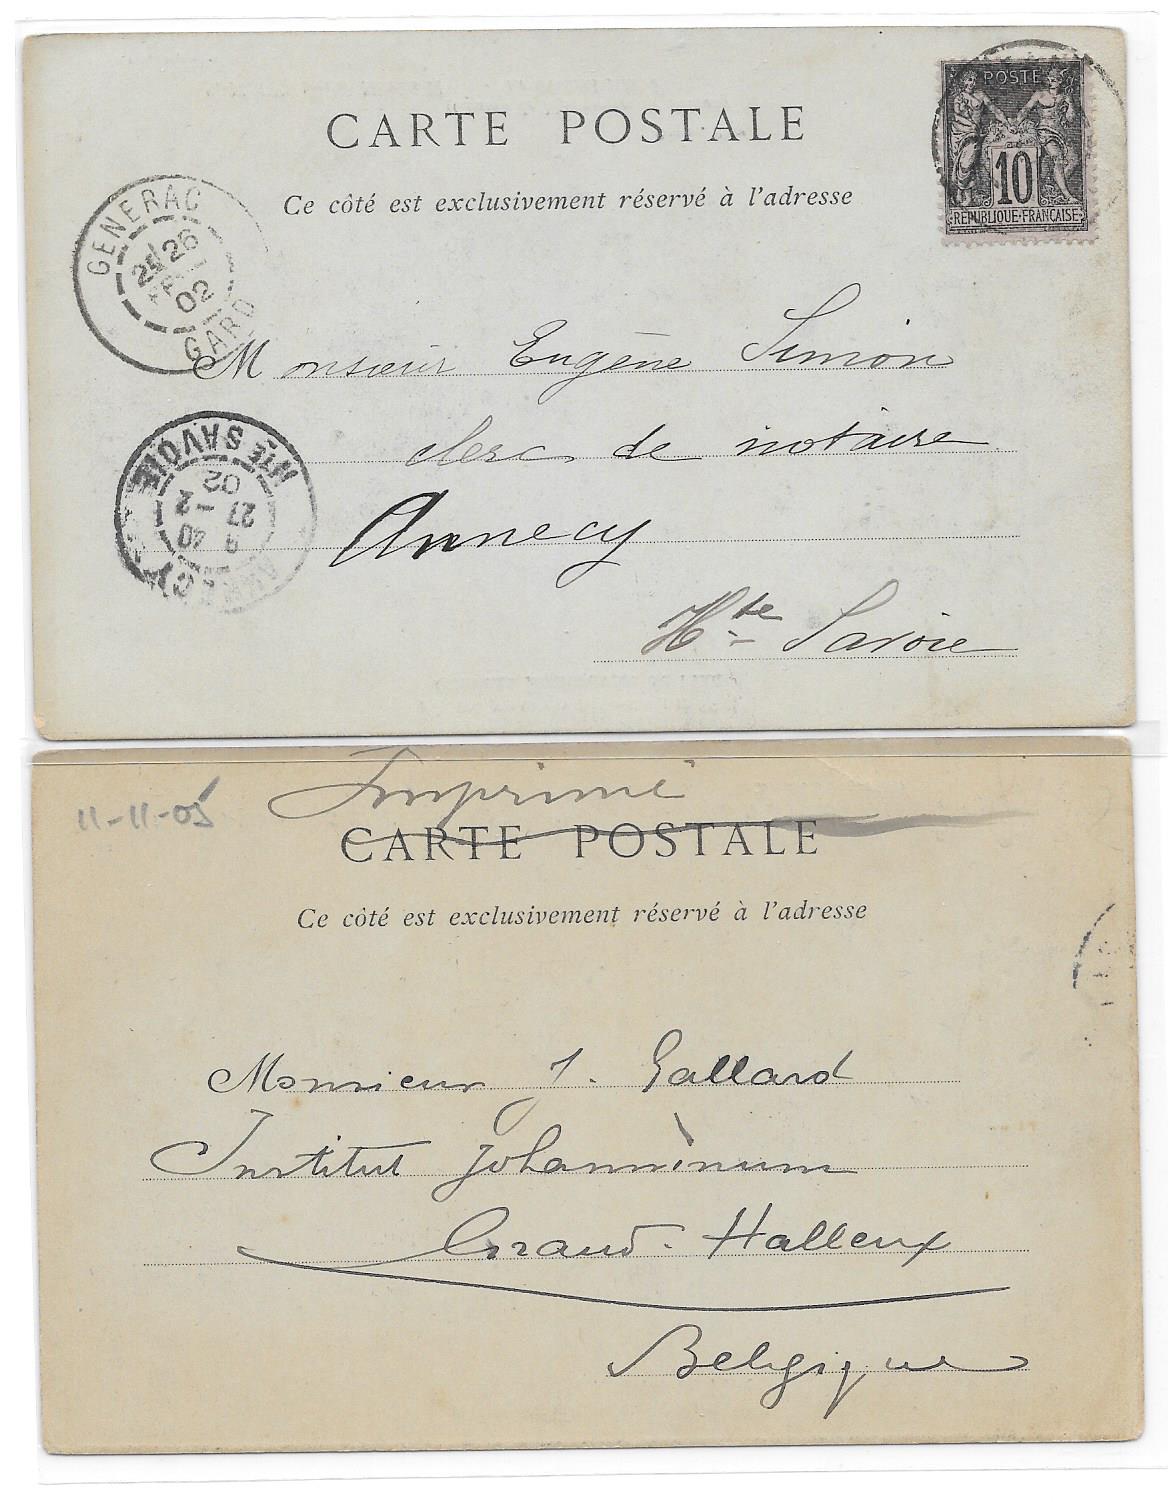 CARTE POSTALE
Ce côté est exclusivement réservé à l'adresse
POSTE
10
RÉPUBLIQUE FRANÇAISE
GENERAC
26
02
GARD
Monsieur Eugène Simon
clerc de notaire
Annecy
Hte Savoie
HTE SAVOIE
02
27 - 2
9 40
Imprimé
11-11-05
CARTE POSTALE
Ce côté est exclusivement réservé à l'adresse
Monsieur J. Gallard
Institut Johanninum
Grand-Halleux
Belgique